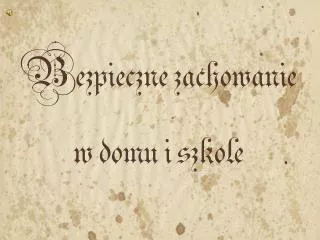 Bezpieczne zachowanie
w domu i szkole